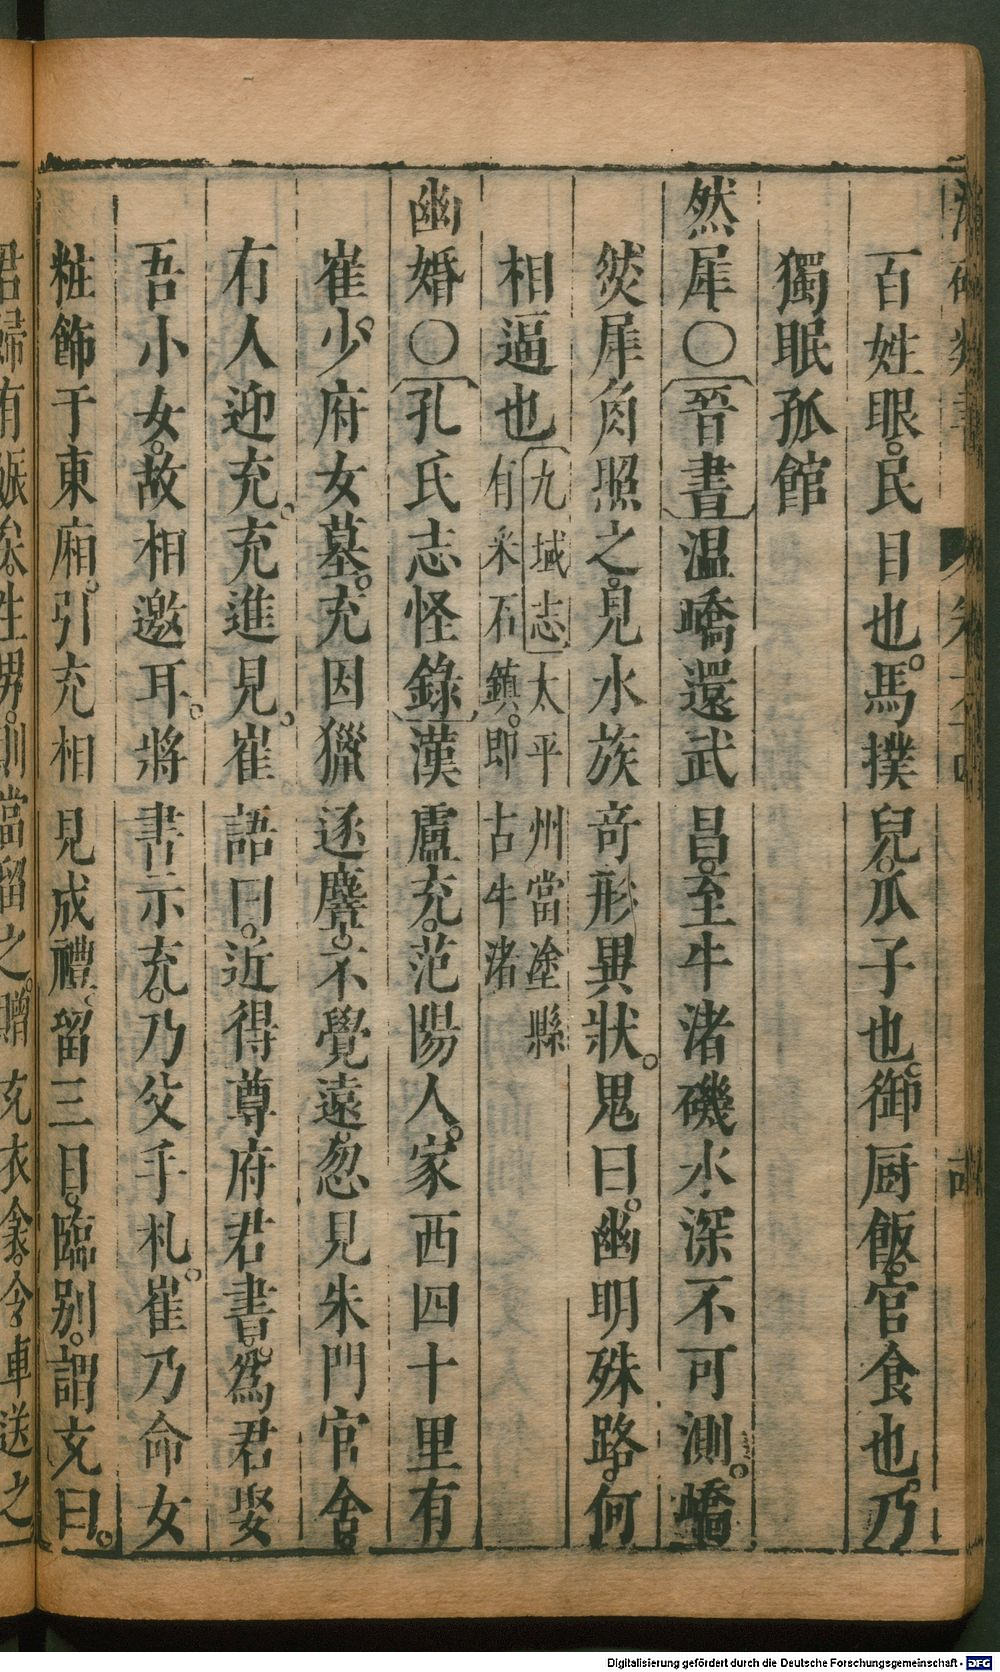 百姓眼。民目也。馬撲兒。瓜子也。御厨飯。官食也。乃
獨眠孤館
然犀〇晉書溫嶠還武昌。至牛渚磯水深不可測。嶠
㷼犀角照之。見水族竒形異狀。鬼曰。幽明殊路。何
相逼也九域志太平州當塗縣
有采石鎮。即古牛渚
幽婚〇孔氏志怪錄漢盧充。范陽人。家西四十里有
崔少府女墓。充因獵逐麞。不覺遠忽見朱門官舍。
有人迎充。充進見。崔語曰。近得尊府君書。為君娶
吾小女。故相邀耳。將書示充。乃父手札。崔乃命女
粧飾于東廂。引充相見成禮。留三日。臨别。謂充曰。
君婦有娠矣。生男。則當留之。贈充衣衾。令車送之
Digitalisierung gefördert durch die Deutsche Forschungsgemeinschaft - DFG